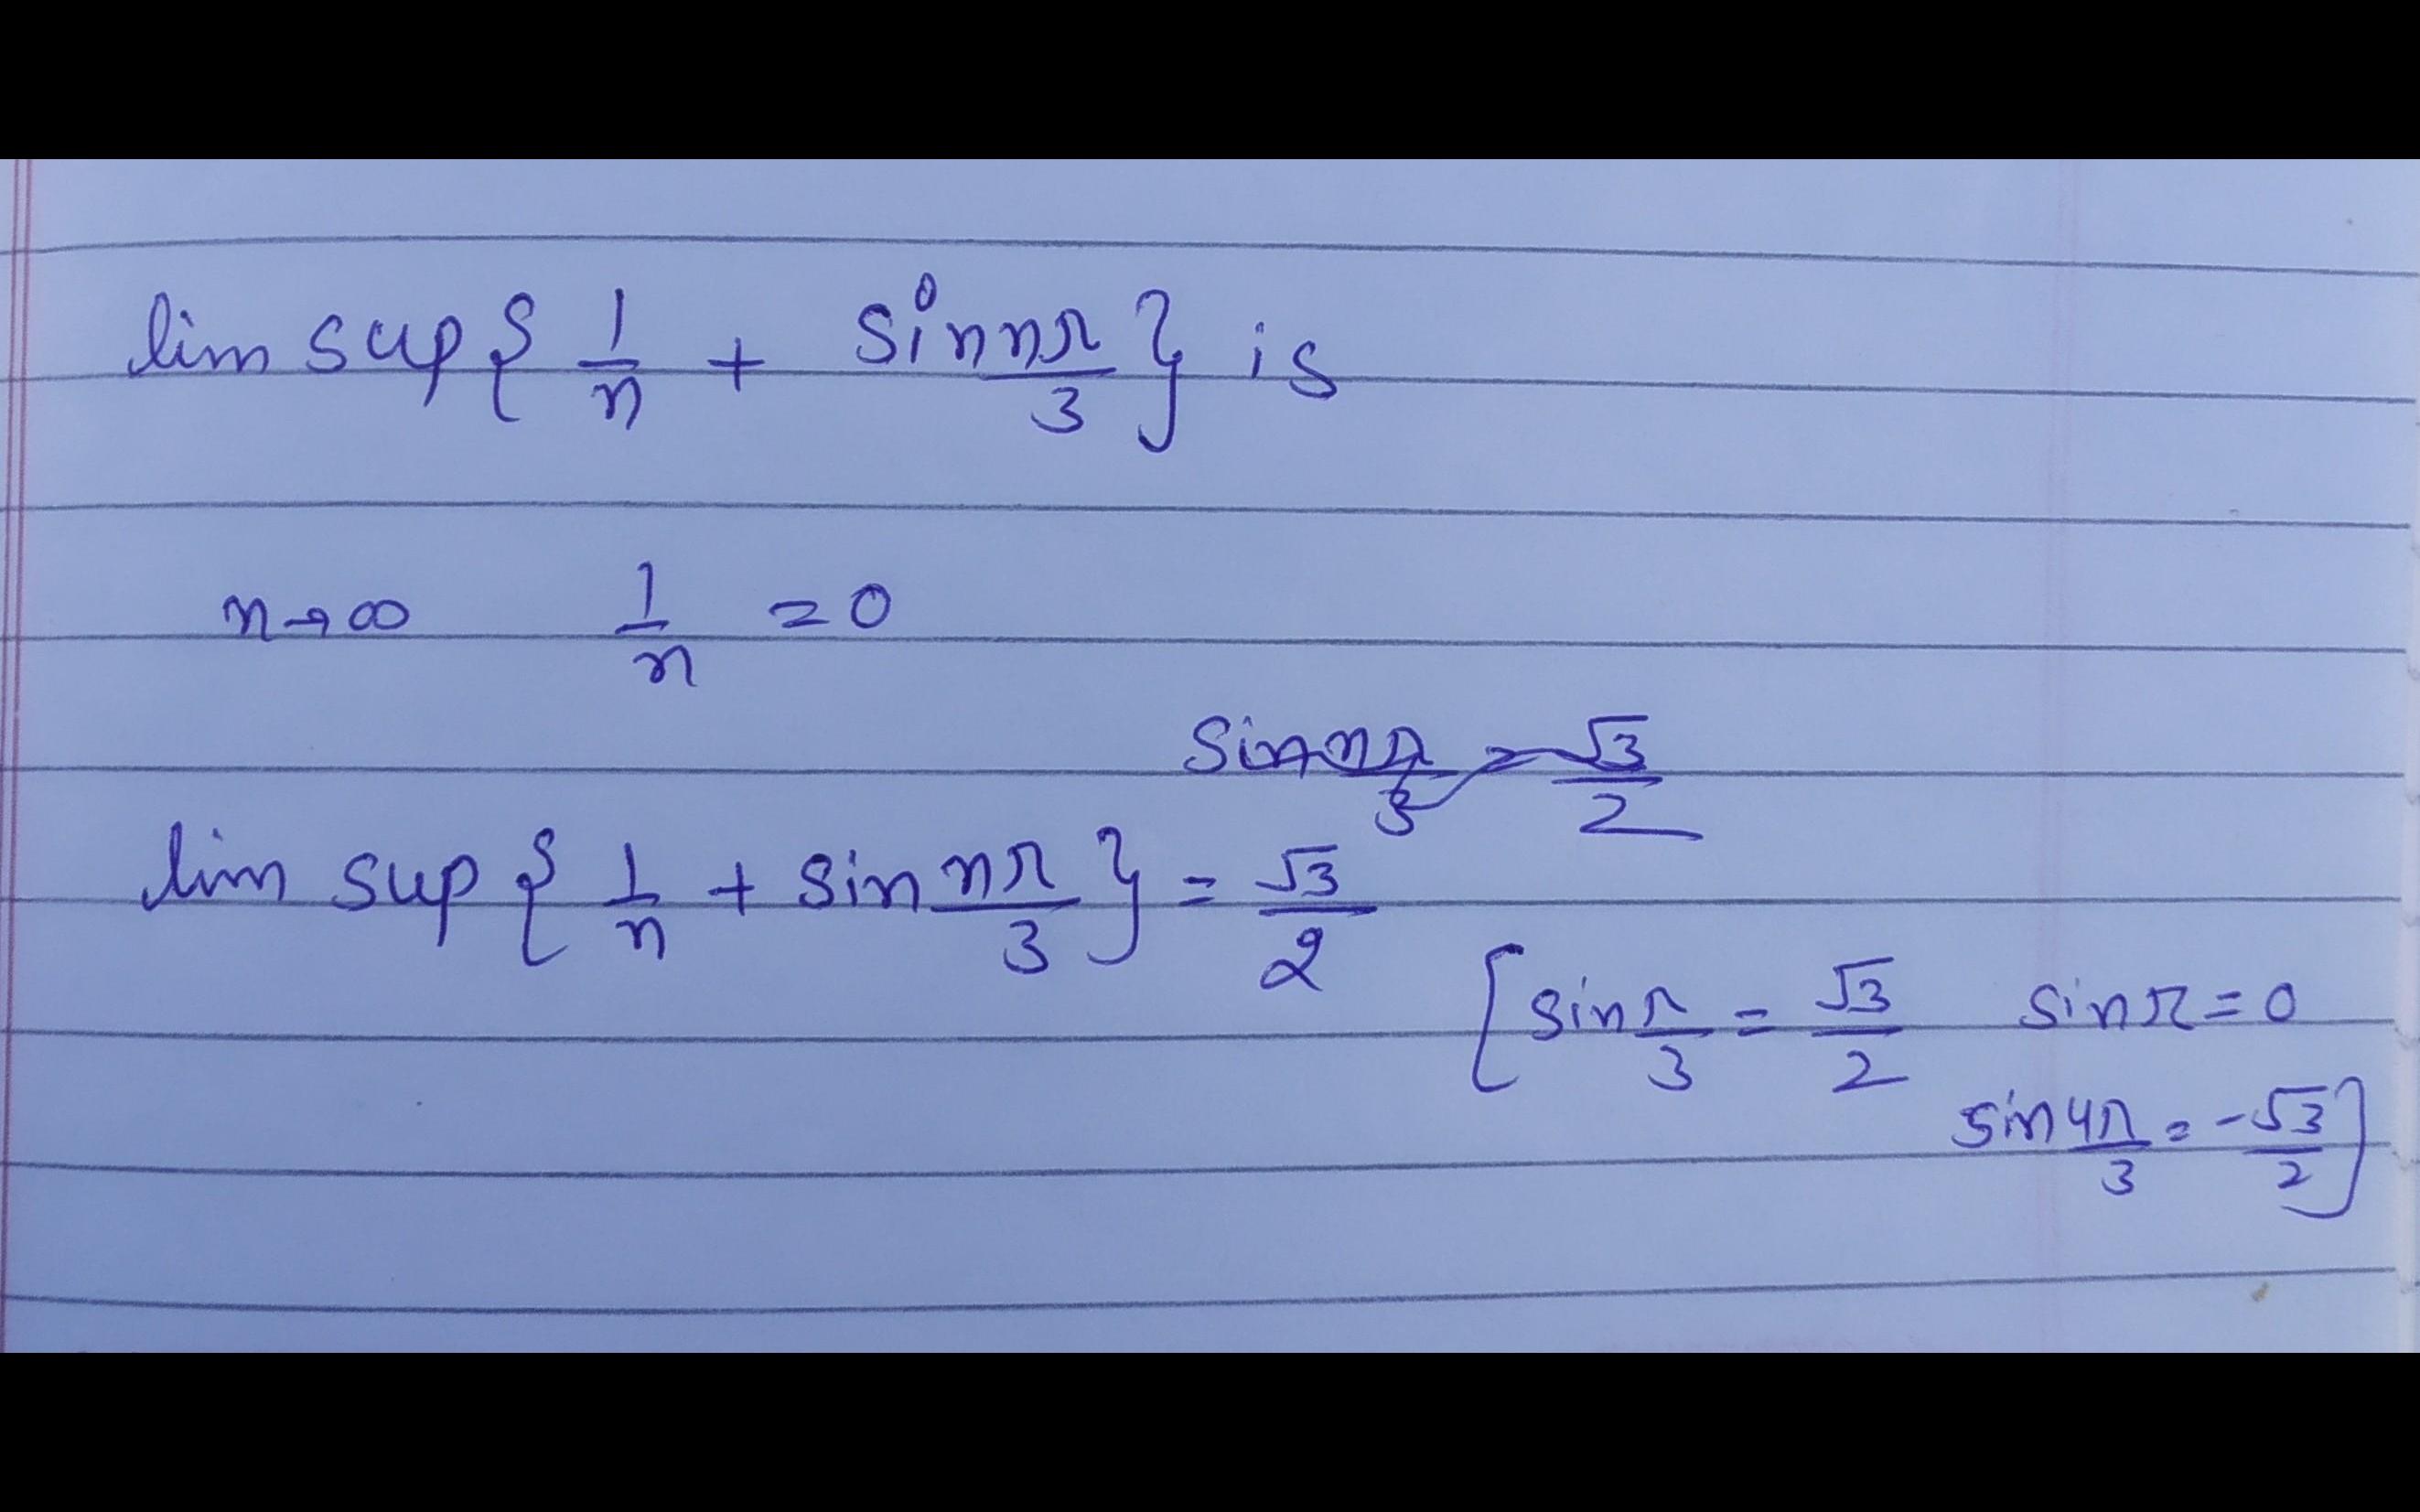 lim sup { 1/n + sin nπ/3 } is
n→∞ 1/n = 0
sin nπ/3 = √3/2
lim sup { 1/n + sin nπ/3 } = √3/2
[ sin π/3 = √3/2 sin π = 0
sin 4π/3 = -√3/2 ]